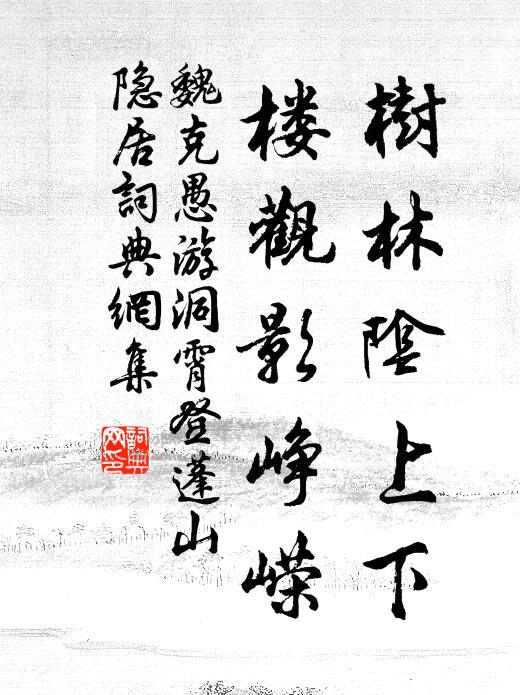 樹林陰上下
楼觀影峥嵘
魏克愚游洞霄登蓬山
隐居詞典網集
詞典網印